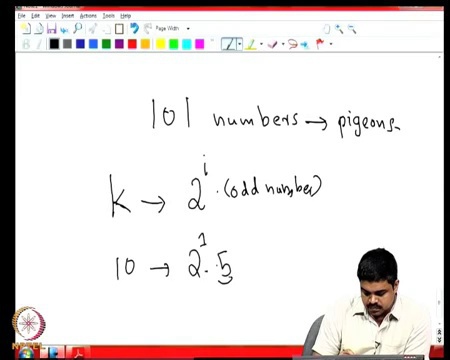 File Edit View Insert Actions Tools Help
Page Width
101 numbers → pigeons
K → 2^i . (odd number)
10 → 2^1 . 5
NPTEL